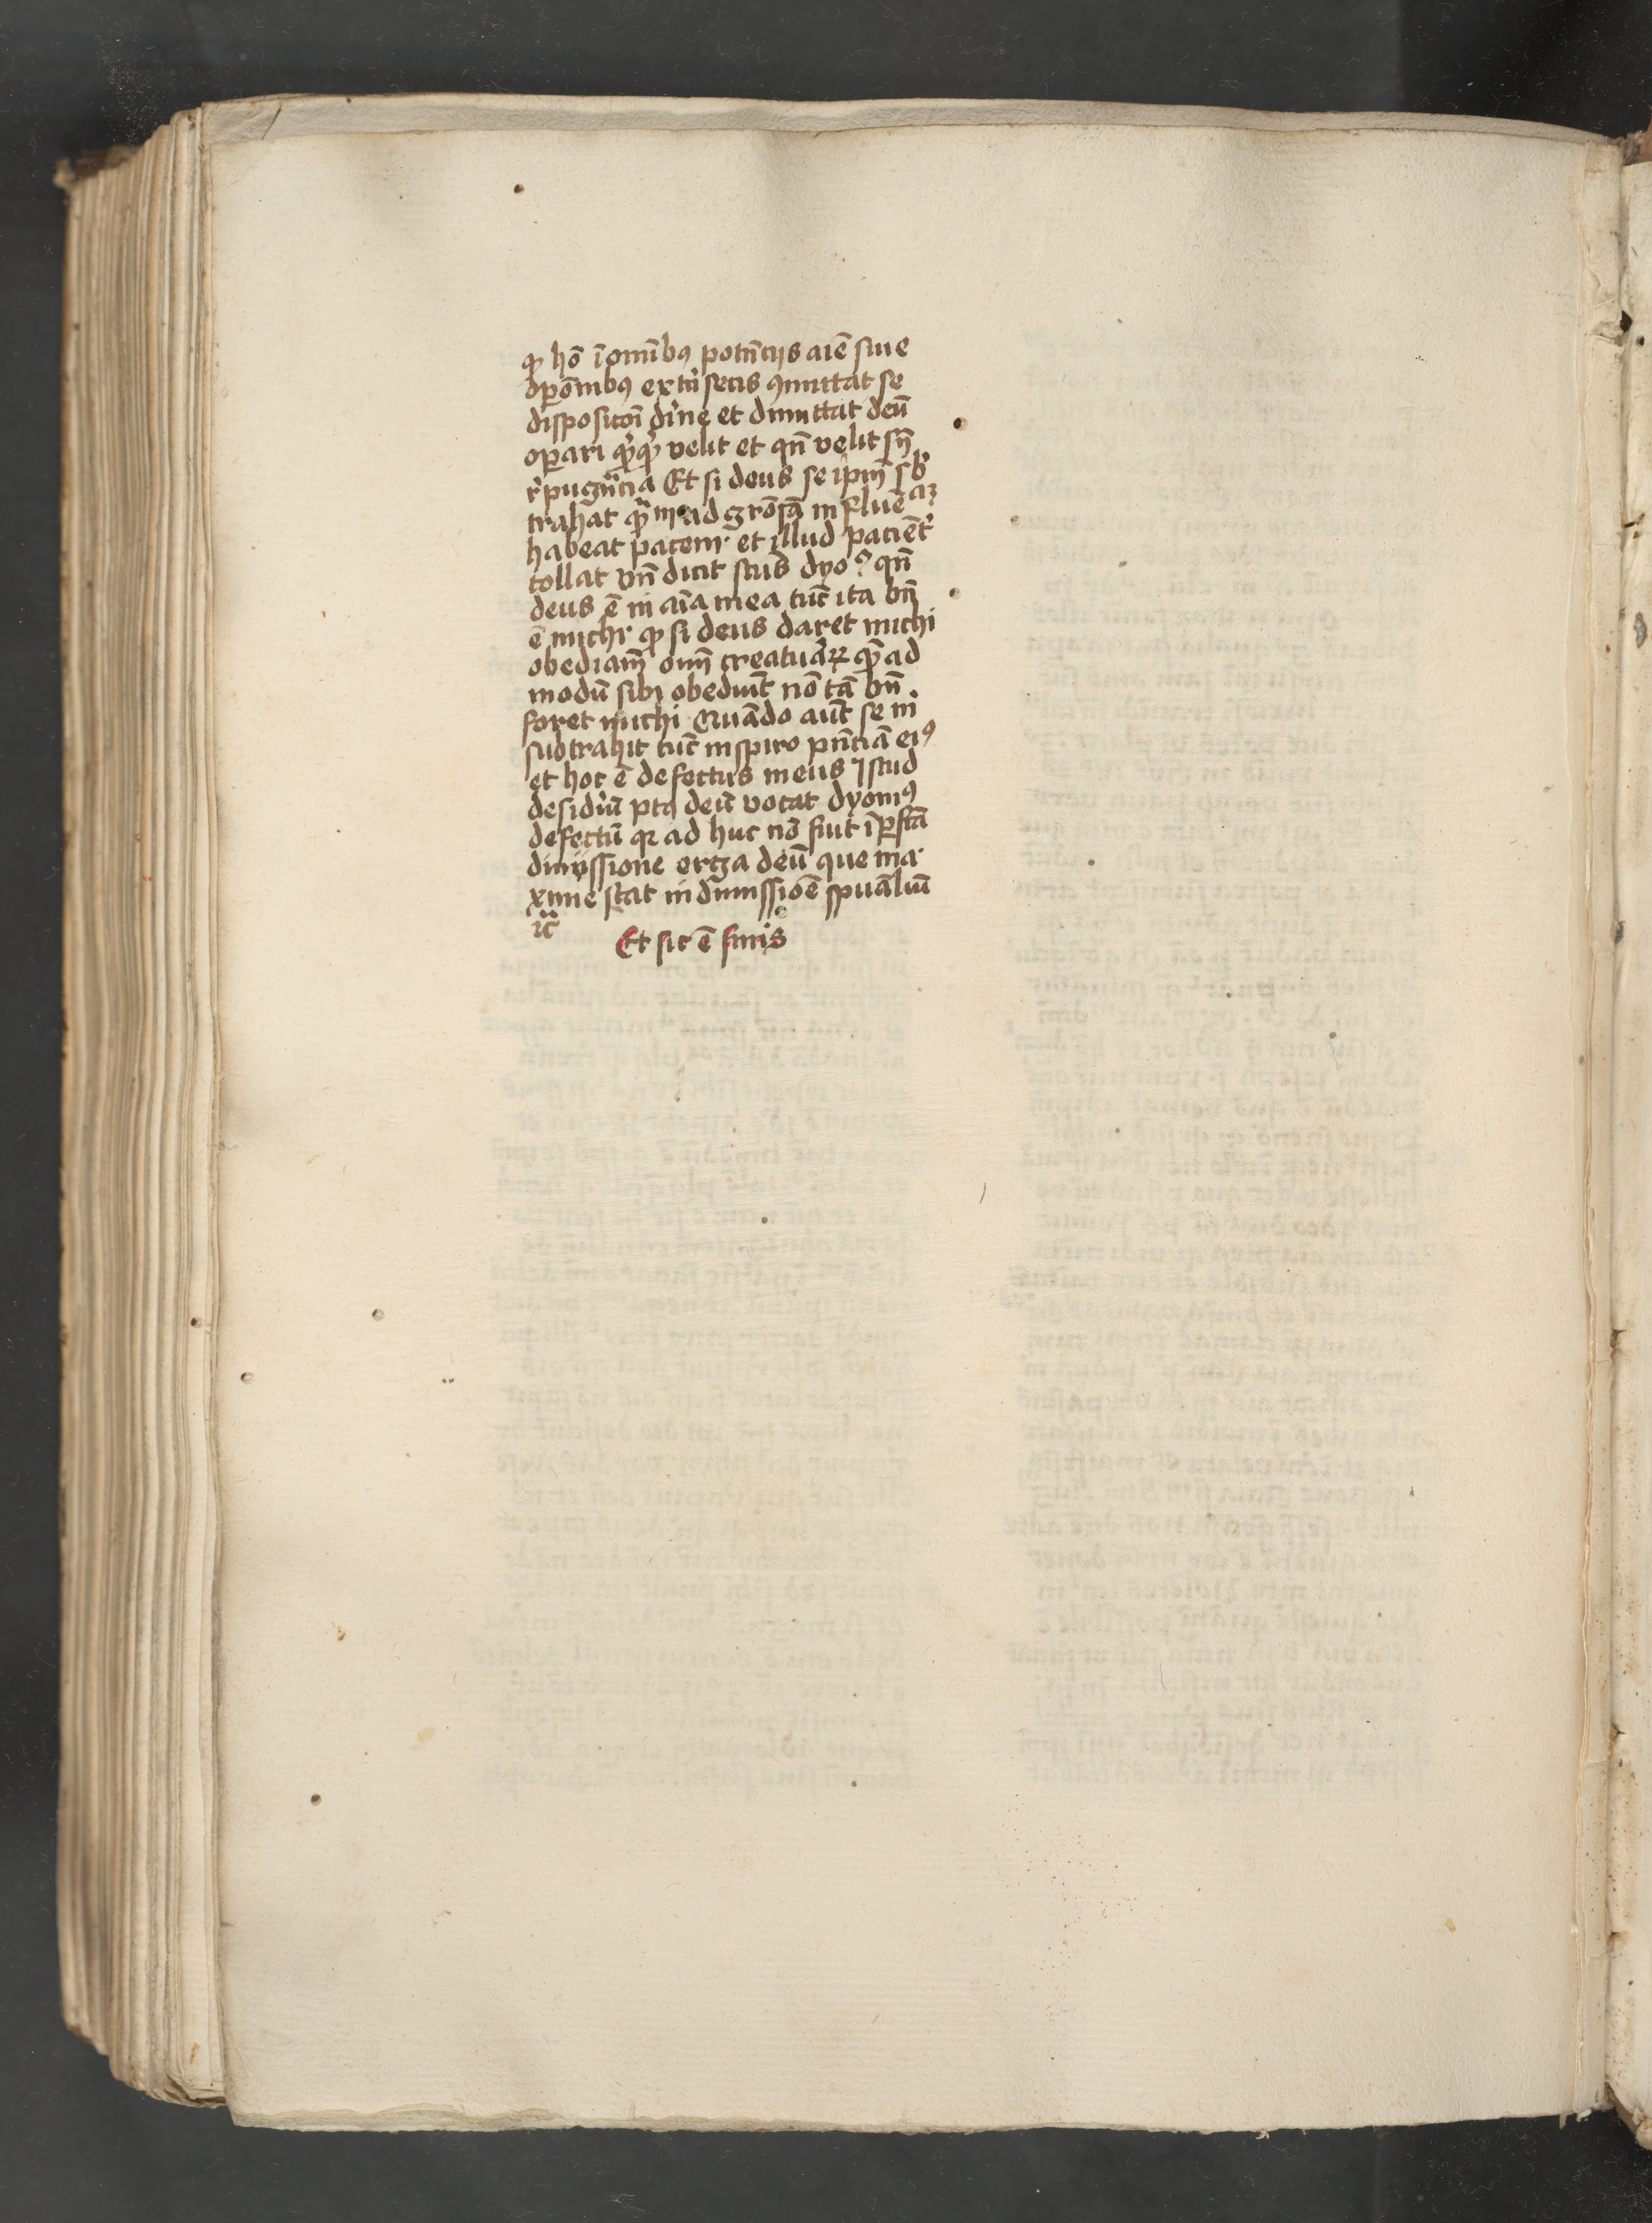 ꝙ hō ī om̄ibꝯ potn̄cijs aīe siue
oꝑōnibꝯ extͥnsecis ꝯmittat se
dispositōi diͥne et dimittat deū
oꝑari qͥcꝙͥd velit et qn̄ velit sn̄
rͥpugnͣcia Et si deus se ipm̄ sbͥ
trahat qͣm ad grōsā influēciaꝫ
habeat pacem et illud paciētͥ
tollat vn̄ dicit scūs dyoꝰ qn̄
deus ē in aīa mea tūc ita bn̄
ē michi ꝙ si deus daret michi
obediam̄ oīm creatuͣꝝ quē ad
modū sibi obediūt nō tā bn̄
foret michi Quādo aūt se mͥ
subtrahit tūc inspiro pn̄ciā eiꝰ
et hoc ē defectus meus Istud
desidͥiū ptꝰ deū vocat dyonꝰ
defectū qꝛ ad huc nō sūt ī ꝑfcā
dimissione erga deū que ma
xime stat in dimissiōe spūaliū
⁊c̄
Et sic ē finis